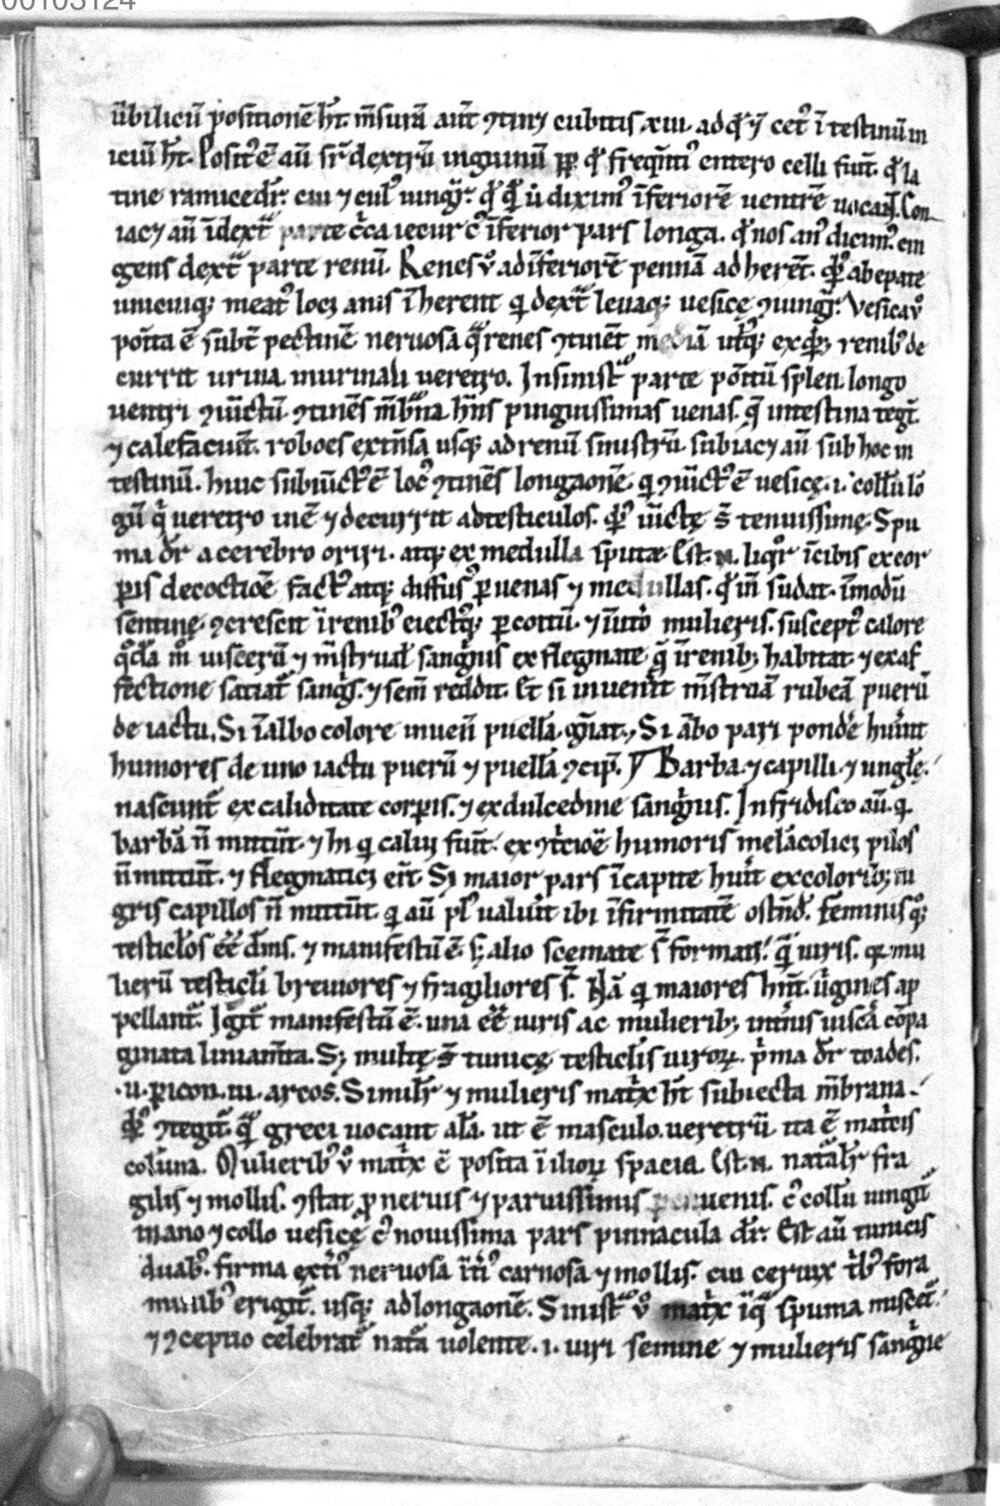 00103124
ūbilicū positionē hr̄. m̄surā aut̄ ꝯtinꝫ cubitis .xiii. ad qd̓ ⁊ cet̓ ītestinū in
iciū hr̄. Posit᷒ ē aū sr̄ dextrū inguinū ꝓp̄ qd̓ freq̄nt᷒ entero celli fiūt. qd̓ la
tine ramicē dr̄. cui ⁊ cul᷒ iungr̄. qd̓ ū dixim᷒ īferiorē uentrē uocaꝫ. Con
iacꝫ aū īdextͣ parte cͨca iecur ē īferior pars longa. qd̓ nos an᷒ dicim᷒. cin
gens dextͣ parte renū. Renes ꝟ̊ ad īferiorē pennā adherēt. qͦꝝ ab epate
unicuiqꝫ meat᷒ locꝫ anis īherent qi dextͣ leuaqꝫ uesicę ꝯiungr̄. Vesica ꝟ̊
poīta ē subt᷒ pectinē neruosa qͣ̄ renes ꝯtinēt mediā utͥqꝫ ex qͥbꝫ renib᷒ de
currit urina. in urinali ueretro. In sinistͣ parte poītū splen. longo
uentri ꝯiūctū. ꝯtinēs mēbͣna hn̄s pinguissimas uenas. qͣ̄ intestina tegit
⁊ calefaciūt. roboes extēsa usqꝫ ad renū sinistrū. subiacꝫ aū sub hoc in
testinū. huic subiūct᷒ ē loc᷒ ꝯtinēs longaonē. qi ꝯiūct᷒ ē uesicę .i. collū lō
gū qͥ ueretro inē ⁊ decurrit ad testiculos. qͦꝝ iūctę s̄t tenuissimę. Spu
ma dr̄ a cerebro oriri. atqꝫ ex medulla sputā. Est .n. liqͦr īcibis ex cor
ꝑis decoctiōe fact᷒ atqꝫ diffus᷒ ꝑ uenas ⁊ medullas. qd̓ in̄ sudat. īmodū
sentinę. ꝯcrescit ī renib᷒ eiect᷒qꝫ ꝑ coitū. ⁊ īuto᷒ mulieris. suscept᷒ calore
qͦdā m̊ uiscerū ⁊ m̄strual̓ sang̓nis ex flegmate qͣ̄ ī renibꝫ habitat. ⁊ ex af
fectione satiat̄ sang̓s. ⁊ sem̄ reddit. Et si inuen̄it m̄struā rubeā puerū
de iactu. Si ī albo colore inuen̄ puellā gn̄at. Si ābo pari pondēe hūint
humores de uno iactu puerū ⁊ puellā ꝯcip̄. Barba ⁊ capilli. ⁊ unglę.
nascunt̄ ex caliditate corꝑis. ⁊ ex dulcedine sang̓nis. In fridisco aū. qi
barbā n̄ mittūt. ⁊ hi qi calui fiūt. ex ꝯtͥcioē humoris melācolici pilos
n̄ mittūt. ⁊ flegmatici er̄t. Si maior pars ī capite hūit ex coloribꝫ ni
gris capillos n̄ mittūt. qi aū pl᷒ ualūit ibi īfirmitatē ostn̄d̓. feminis qͦqꝫ
testicl̓os ēē dīm᷒. ⁊ manifestū ē. sꝫ alio scemate s̄ format̓. qͣ̄ uiris. qꝛ mu
lierū testicl̓i breuiores ⁊ fragiliores s̄t. Nā qi maiores hn̄t. ūgines ap
pellant̄. Ig̓t̄ manifestū ē. una ēē uiris ac mulieribꝫ intͥns uiscͣ cōpa
ginata liniam̄ta. Sꝫ multę s̄t tunicę testicl̓is uiroꝝ. pͥma dr̄ toades.
.ii. ꝑicon. iii. arcos. Similr̄ ⁊ mulieris matͥx hr̄t subiecta mēbrana.
qͦꝝ ꝯtegit̄. qͣ̄ greci uocant alā. ut ē masculo. ueretrū ita ē matͥcis
colūna. Mulierib᷒ ꝟ̊ matͥx ē posita ī ilioꝝ spacia. Est .n. natͣlr̄ fra
gilis ⁊ mollis. ꝯstat ꝓ neruis ⁊ paruissimis uenis. ē collū iungit̄
mano ⁊ collo uesicę ē nouissima pars pinnacula dr̄. Est aū tunicis
duab᷒. firma extͥ᷒ neruosa īt᷒ carnosa ⁊ mollis. cui ceruix tͥb᷒ fora
minib᷒ erigit̄. usqꝫ ad longaonē. Sinistͣ ꝟ̊ matͥx ī qͣ spuma miscet̄.
⁊ ꝯceptio celebrat̄ natͣ uolente .i. uiri semine ⁊ mulieris sang̓ne